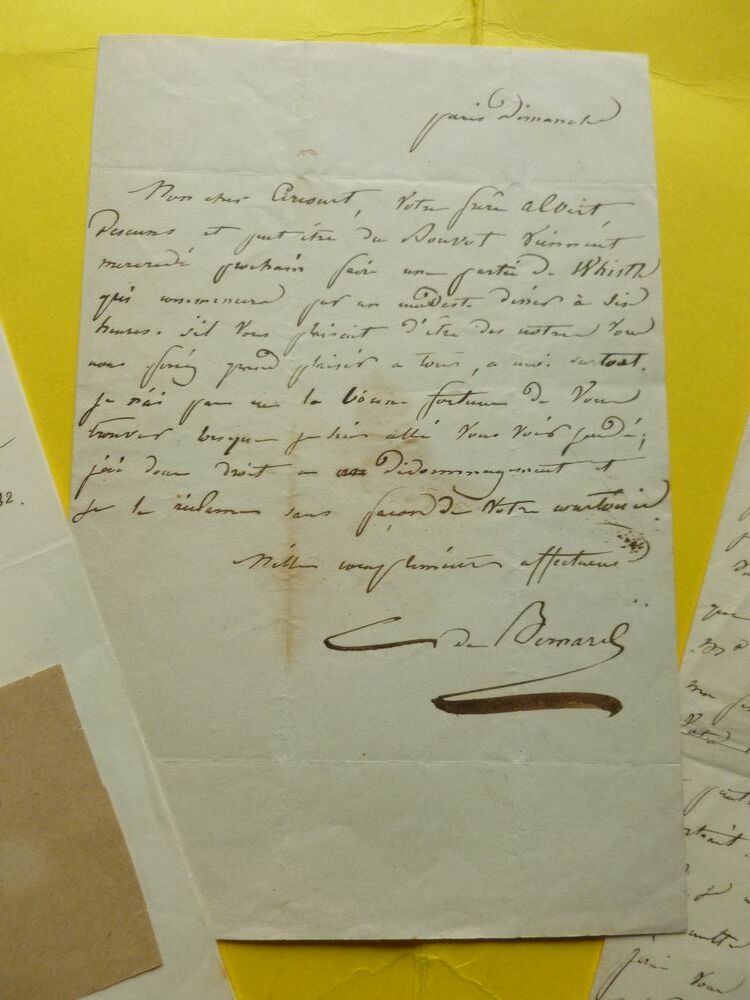 paris Dimanche
Mon cher Circourt, Votre frère Albert,
et peut être du Bouvet viennent
mercredi prochain faire une partie de Whisth
qui commencera par un modeste dîner à six
heures. s'il vous plaisait d'être des notres vous
nous feriez grand plaisir a tous, a moi surtout.
je n'ai pas eu la bonne fortune de Vous
trouver lorsque je suis allé Vous voir jeudi;
j'ai donc droit a un dédommagement et
je le réclame sans façon de votre courtoisie
Mille complimens affectueux
C de
32.